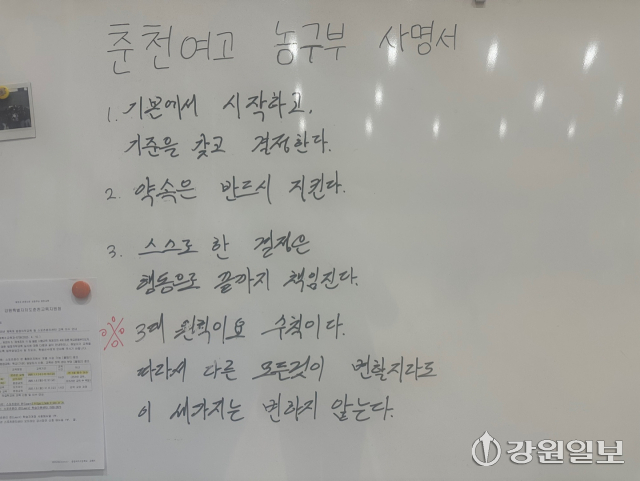 춘천여고 농구부 사명서
1. 기본에서 시작하고,
기준을 갖고 결정한다.
2. 약속은 반드시 지킨다.
3. 스스로 한 결정은
행동으로 끝까지 책임진다.
※ 3대 원칙이요 수칙이다.
따라서 다른 모든것이 변할지라도
이 세가지는 변하지 않는다.
강원일보